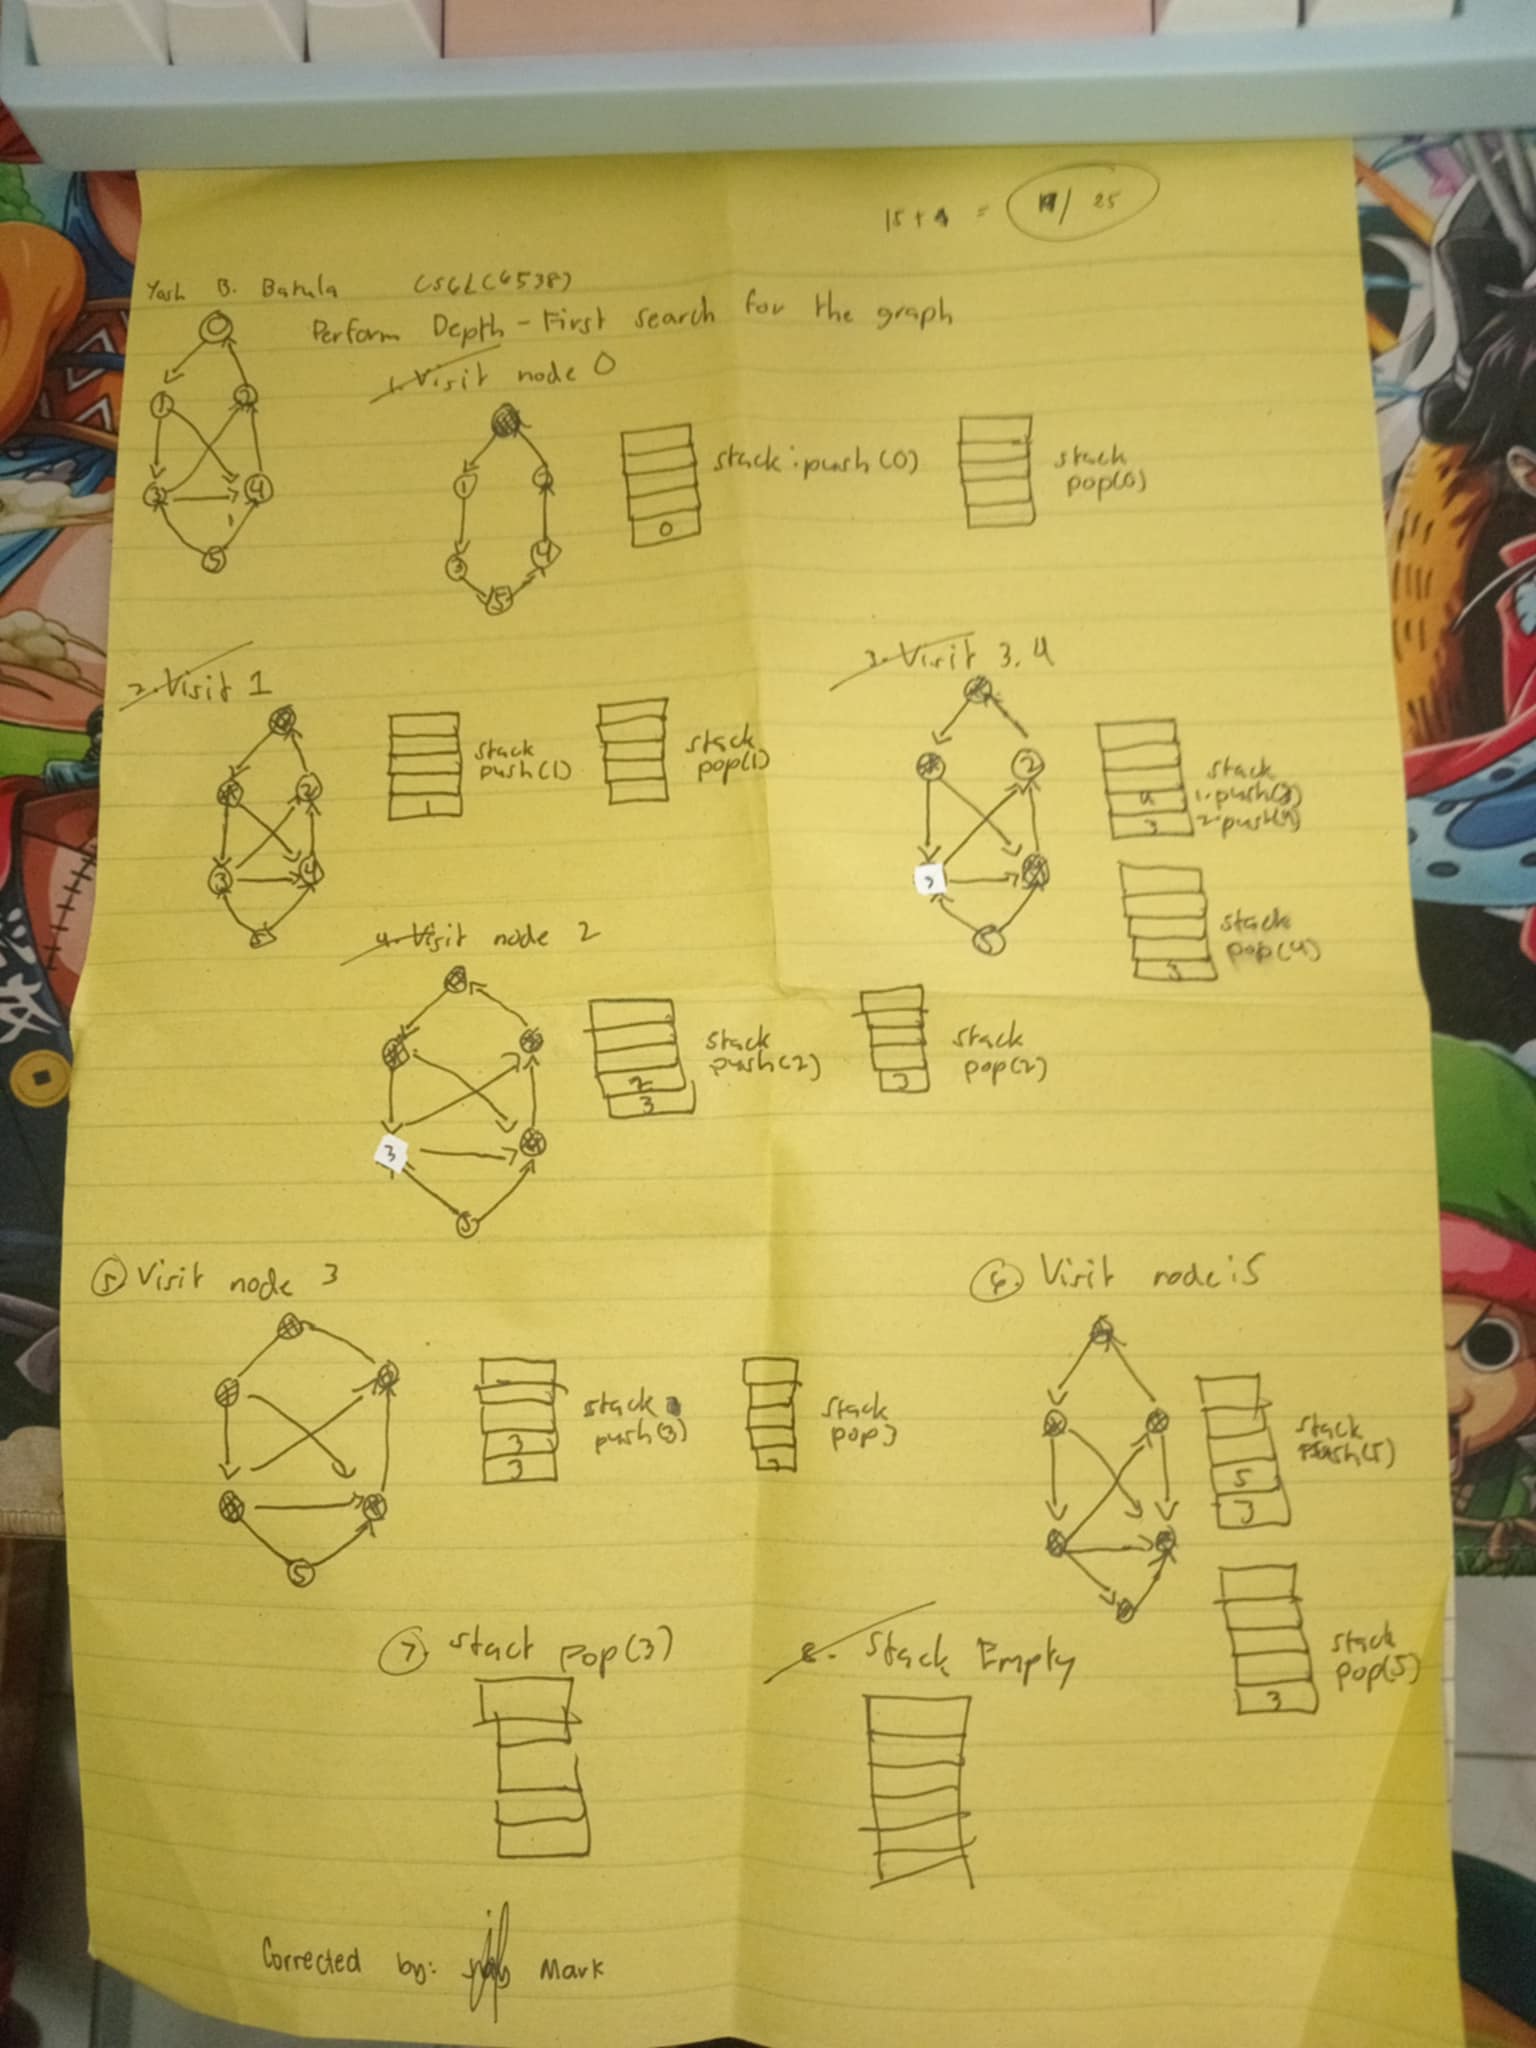 15 + 4 = 19 / 25
Yash B. Batula
Perform Depth - First search for the graph
0
1
2
3
4
5
1. Visit node 0
1
2
3
4
5
0
stack : push (0)
stack
pop(0)
2. Visit 1
2
3
4
5
1
stack
push(1)
stack
pop(1)
3. Visit 3, 4
2
3
5
4
3
stack
1. push(3)
2. push(4)
3
stack
pop(4)
4. Visit node 2
3
5
2
3
stack
push(2)
3
stack
pop(2)
5. Visit node 3
5
3
3
stack
push(3)
3
stack
pop 3
6. Visit node : 5
5
3
stack
push(5)
3
stack
pop(5)
7. Stact pop(3)
8. Stack Empty
Corrected by: Mark